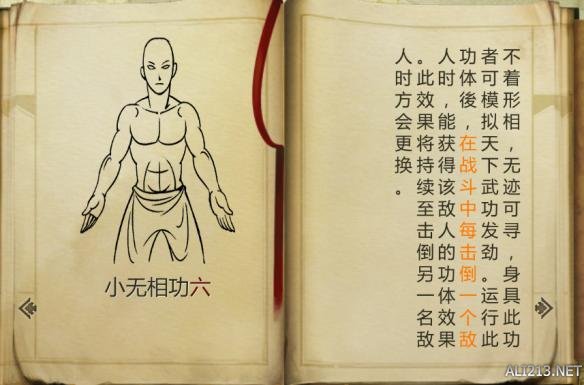 小无相功六
不着形相，无迹可寻，身具此功
者可模拟天下武功发劲。运行此
功体後，在战斗中每击倒一个敌
人时，能获得该敌人的功体效果
。此效果将持续至击倒另一名敌
人时方会更换。
ALI213.NET